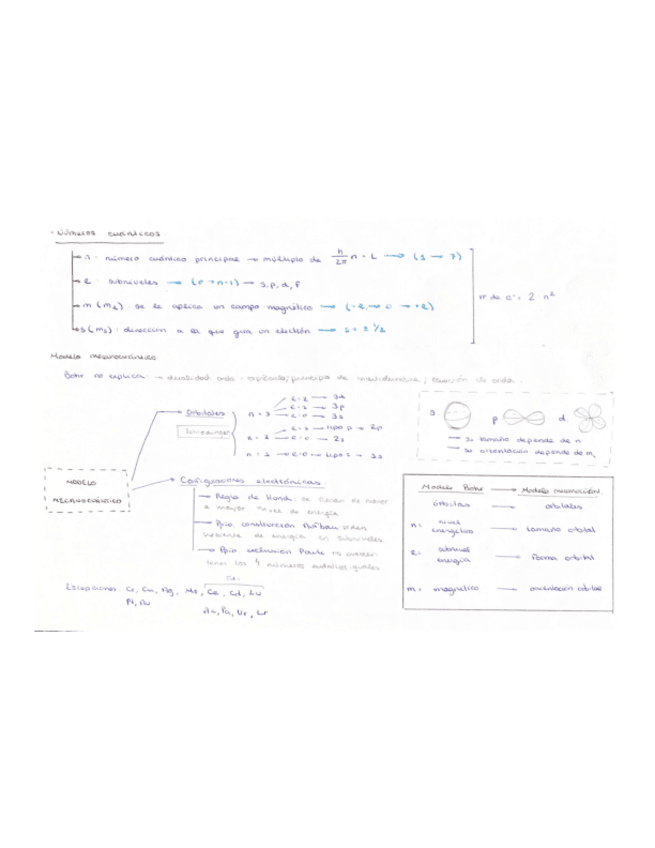 · Números cuánticos.
n: número cuántico principal → múltiplo de h/2π n = L → (1 → 7)
l: subniveles → (0 → n-1) → s, p, d, f
m (ml): se le aplica un campo magnético → (-l → 0 → +l)
s (ms): dirección a la que gira un electrón → s = ± 1/2
nº de e⁻ = 2 n²
Modelo mecanocuántico
Bohr no explica: → dualidad onda - partícula; principio de incertidumbre; ecuación de onda.
Orbitales
Schrödinger
n = 3
l = 2 → 3d
l = 1 → 3p
l = 0 → 3s
n = 2
l = 1 → tipo p → 2p
l = 0 → 2s
n = 1 → l = 0 → tipo s → 1s
s.
p
d.
→ su tamaño depende de n
→ su orientación depende de ml
MODELO
MECANOCUÁNTICO
Configuraciones electrónicas
→ Regla de Hund: se llenan de menor
a mayor nivel de energía
→ Ppio construcción Aufbau: orden
creciente de energía en subniveles
→ Ppio exclusión Pauli: no pueden
tener los 4 números cuánticos iguales
Excepciones: Cr, Cu, Ag, Ce, Gd, Lu
Pt, Au
Pa, Lr
Modelo Bohr → Modelo mecanocuán.
órbitas → orbitales
n = nivel energético → tamaño orbital
l = subnivel energía → forma orbital
m = magnético → orientación orbital